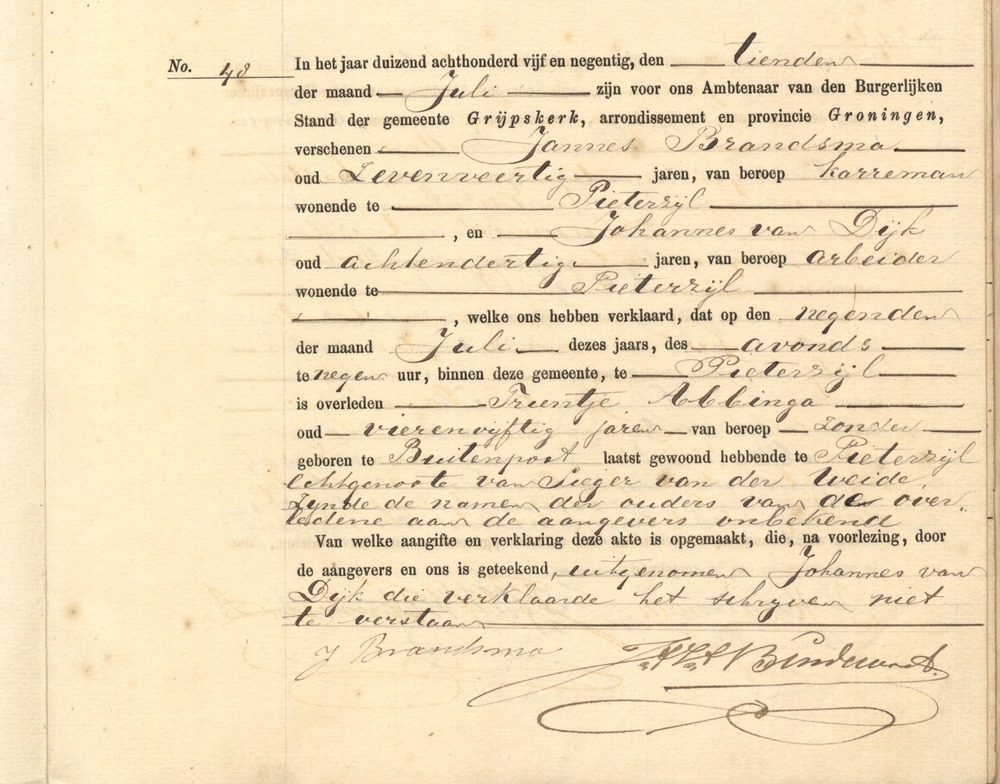 No. 48
In het jaar duizend achthonderd vijf en negentig, den tienden
der maand Juli zijn voor ons Ambtenaar van den Burgerlijken
Stand der gemeente Grijpskerk, arrondissement en provincie Groningen,
verschenen Jannes Brandsma
oud Zevenveertig jaren, van beroep karreman
wonende te Pieterzijl
, en Johannes van Dijk
oud achtendertig jaren, van beroep arbeider
wonende te Pieterzijl
, welke ons hebben verklaard, dat op den negenden
der maand Juli dezes jaars, des avonds
te negen uur, binnen deze gemeente, te Pieterzijl
is overleden Trientje Abbinga
oud vierenvijftig jaren van beroep zonder
geboren te Buitenpost laatst gewoond hebbende te Pieterzijl
echtgenoote van Sieger van der Weide,
zynde de namen der ouders van de over-
ledene aan de aangevers onbekend
Van welke aangifte en verklaring deze akte is opgemaakt, die, na voorlezing, door
de aangevers en ons is geteekend, uitgenomen Johannes van
Dijk die verklaarde het schryven niet
te verstaan
J Brandsma